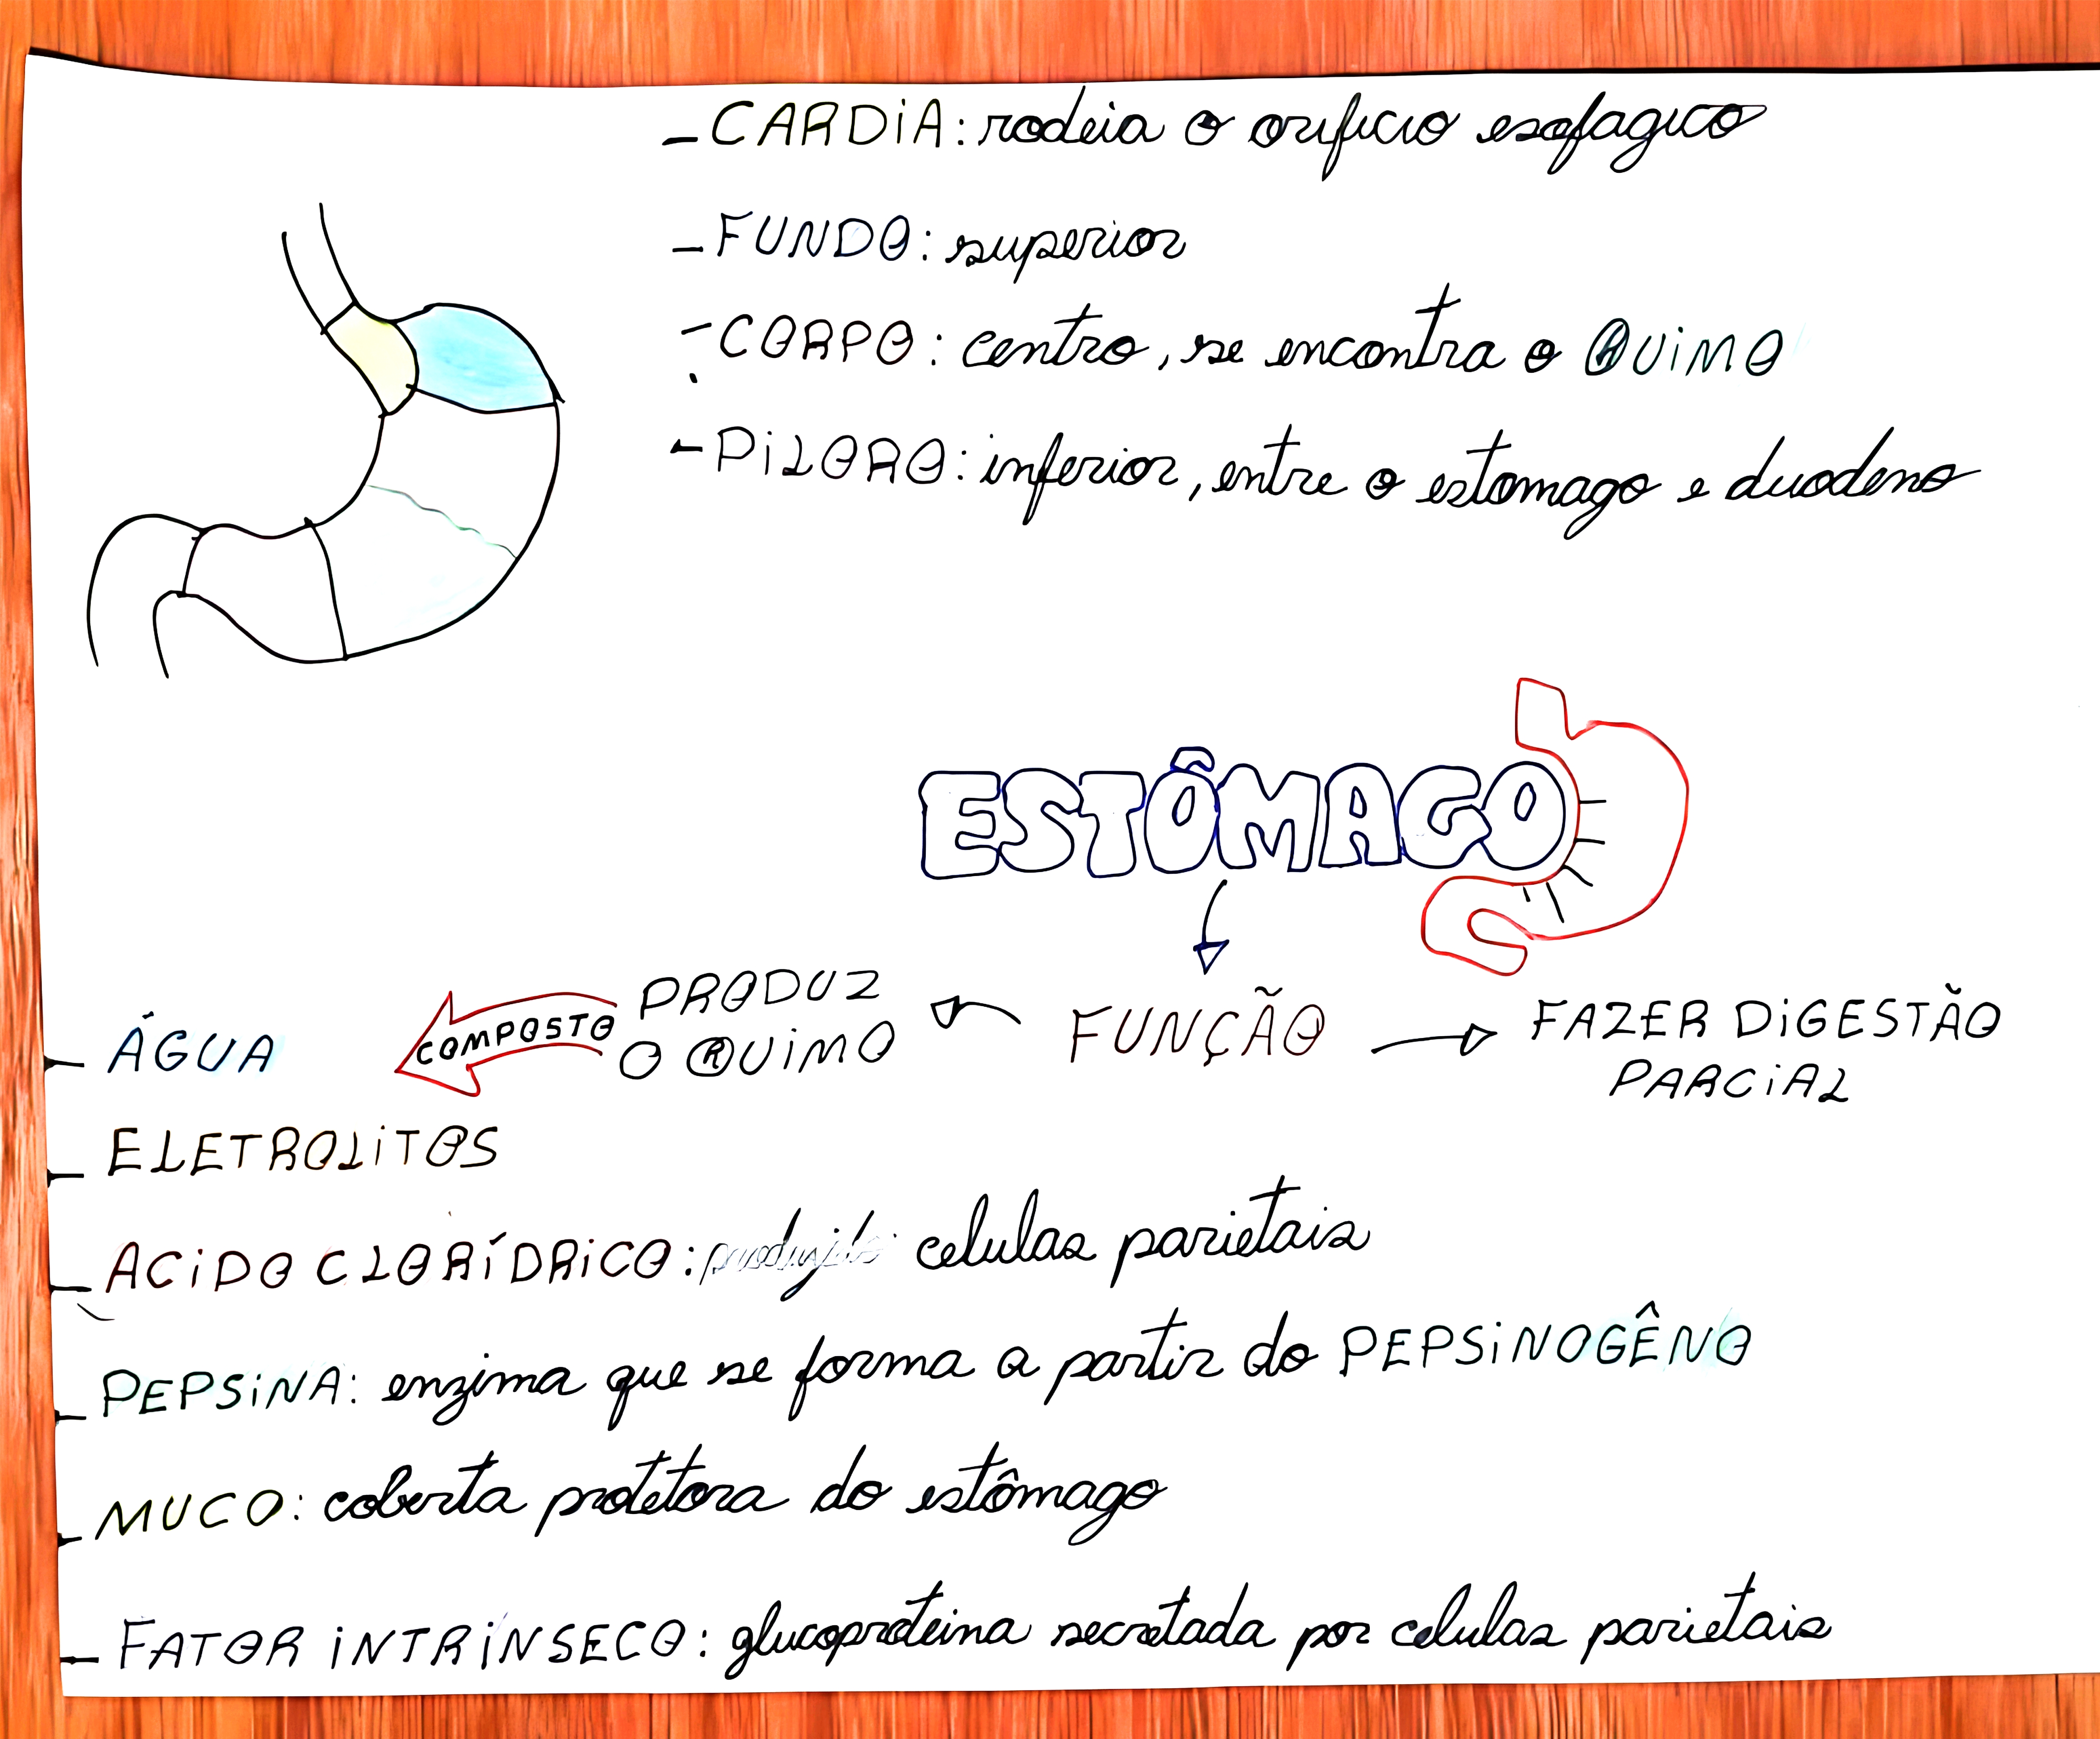 - CARDIA: rodeia o orificio esofagico
- FUNDO: superior
- CORPO: centro, se encontra o QUIMO
- PILORO: inferior, entre o estomago e duodeno
ESTÔMAGO
FUNÇÃO
FAZER DIGESTÃO
PARCIAL
PRODUZ
O QUIMO
COMPOSTO
- ÁGUA
- ELETROLITOS
- ACIDO CLORÍDRICO: produzido celulas parietais
- PEPSINA: enzima que se forma a partir do PEPSINOGÊNO
- MUCO: coberta protetora do estômago
- FATOR INTRINSECO: glucoproteina secretada por celulas parietais